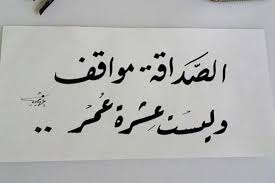 الصَّداقة.. مواقف
وليسَت عِشرة عُمرْ ..